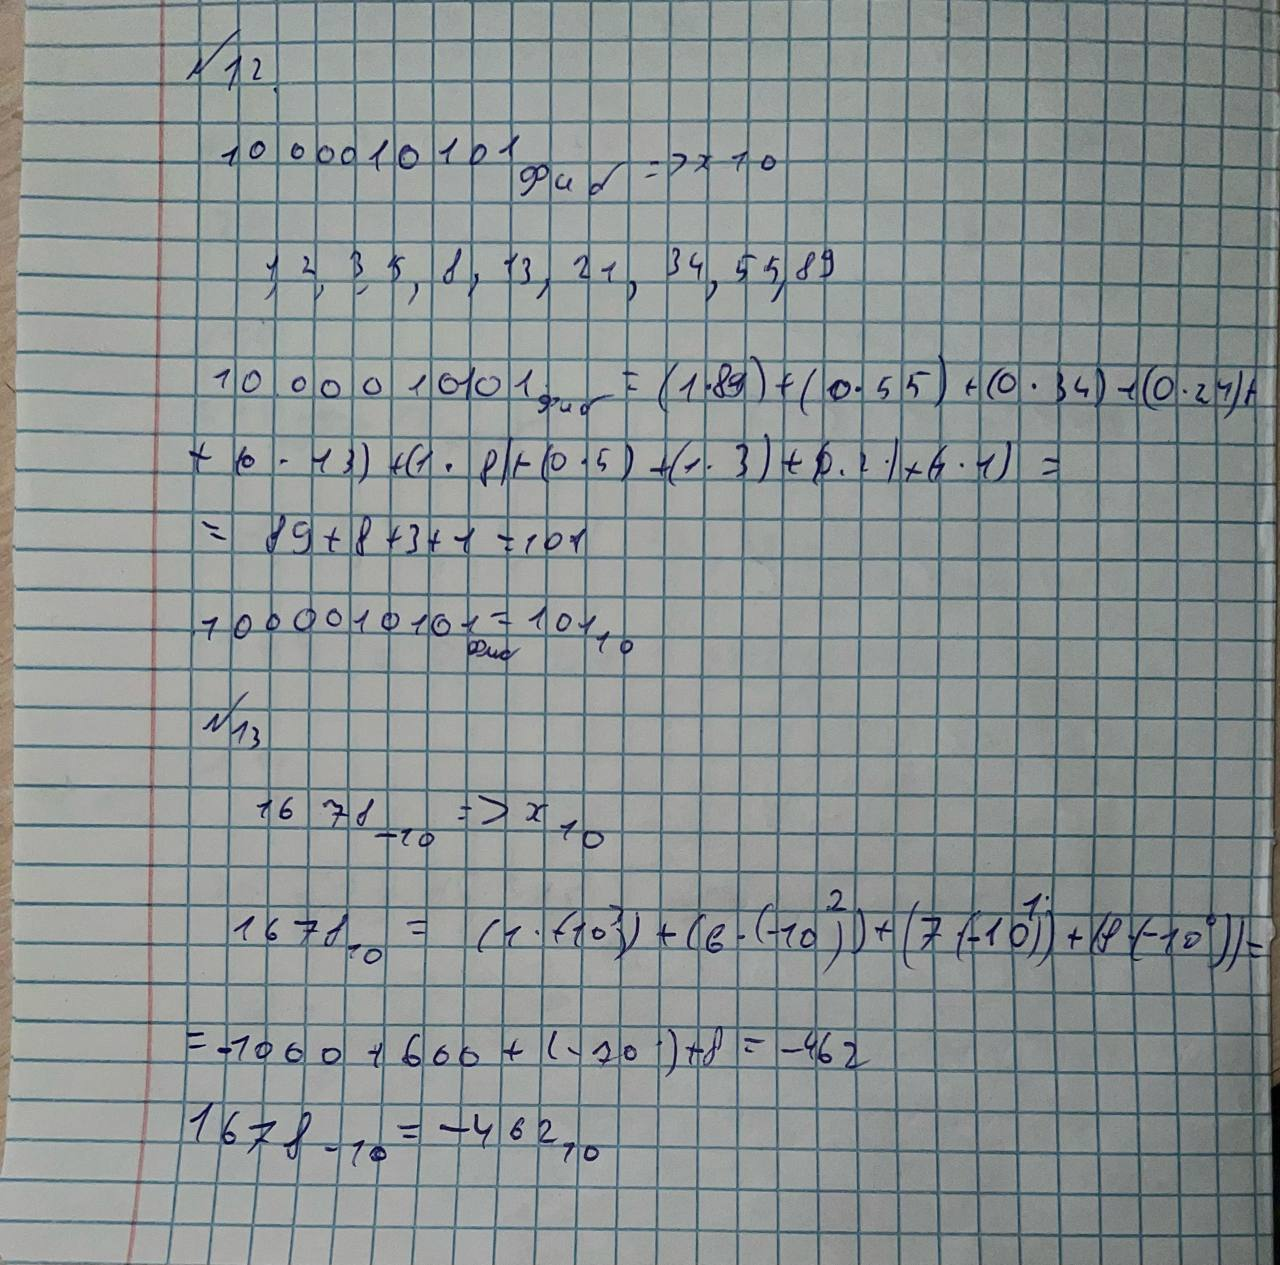 №12.
1000010101фиб => x10
1, 2, 3, 5, 8, 13, 21, 34, 55, 89
1000010101фиб = (1·89)+(0·55)+(0·34)+(0·21)+
+(0·13)+(1·8)+(0·5)+(1·3)+(0·2)+(1·1) =
= 89+8+3+1=101
1000010101фиб = 101₁₀
№13
1678₋₁₀ => x₁₀
1678₁₀ = (1·(-10³)+(6·(-10)²)+(7(-10¹))+(8·(-10⁰))=
=-1000+600+(-70)+8 = -462
1678₋₁₀ = -462₁₀